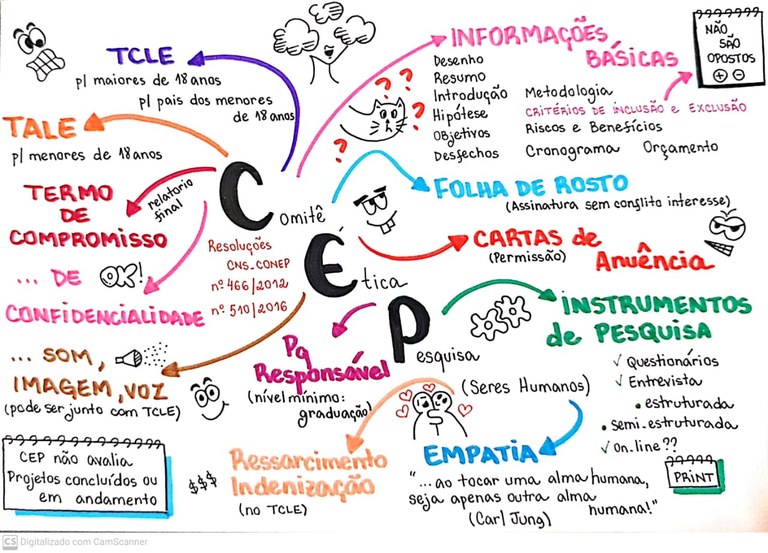 TCLE
p/ maiores de 18 anos
p/ pais dos menores
de 18 anos
TALE
p/ menores de 18 anos
TERMO
DE
COMPROMISSO
relatorio
final
... DE OK!
CONFIDENCIALIDADE
... SOM,
IMAGEM, VOZ
(pode ser junto com TCLE)
CEP não avalia
Projetos concluídos ou
em andamento
Comitê
Ética
Pesquisa
(Seres Humanos)
Resoluções
CNS_CONEP
nº 466/2012
nº 510/2016
INFORMAÇÕES
BÁSICAS
Desenho
Resumo
Introdução
Hipótese
Objetivos
Desfechos
Metodologia
CRITÉRIOS DE INCLUSÃO e EXCLUSÃO
Riscos e Benefícios
Cronograma Orçamento
NÃO
SÃO
OPOSTOS
+ -
? ? ? ?
FOLHA DE ROSTO
(Assinatura sem conflito interesse)
CARTAS de
(Permissão) Anuência
INSTRUMENTOS
de PESQUISA
✓ Questionários
✓ Entrevista
• estruturada
• semi-estruturada
✓ on.line ??
PRINT
Pq
Responsável
(nível mínimo:
graduação)
$$$ Ressarcimento
Indenização
(no TCLE)
EMPATIA
"...ao tocar uma alma humana,
seja apenas outra alma
humana!"
(Carl Jung)
CS Digitalizado com CamScanner